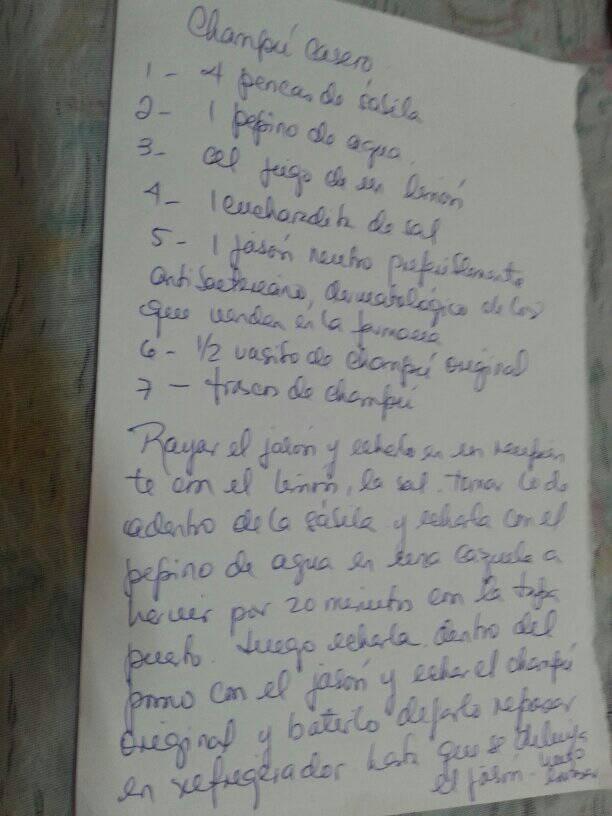 Champú Casero
1 - 4 pencas de sábila
2 - 1 pepino de agua
3 - el jugo de un limón
4 - 1 cucharadita de sal
5 - 1 jabón neutro preferiblemente
antibacteriano, dermatológico de los
que venden en la farmacia
6 - 1/2 vasito de champú original
7 - frascos de champú
Rayar el jabón y echarlo en un recipien
te con el limón, la sal. tomar lo de
adentro de la sábila y echarla con el
pepino de agua en una cazuela a
hervir por 20 minutos con la tapa
puesta. Luego echarla dentro del
pomo con el jabón y echar el champú
original y batirlo dejarlo reposar
en refrigerador hasta que se diluya
el jabón